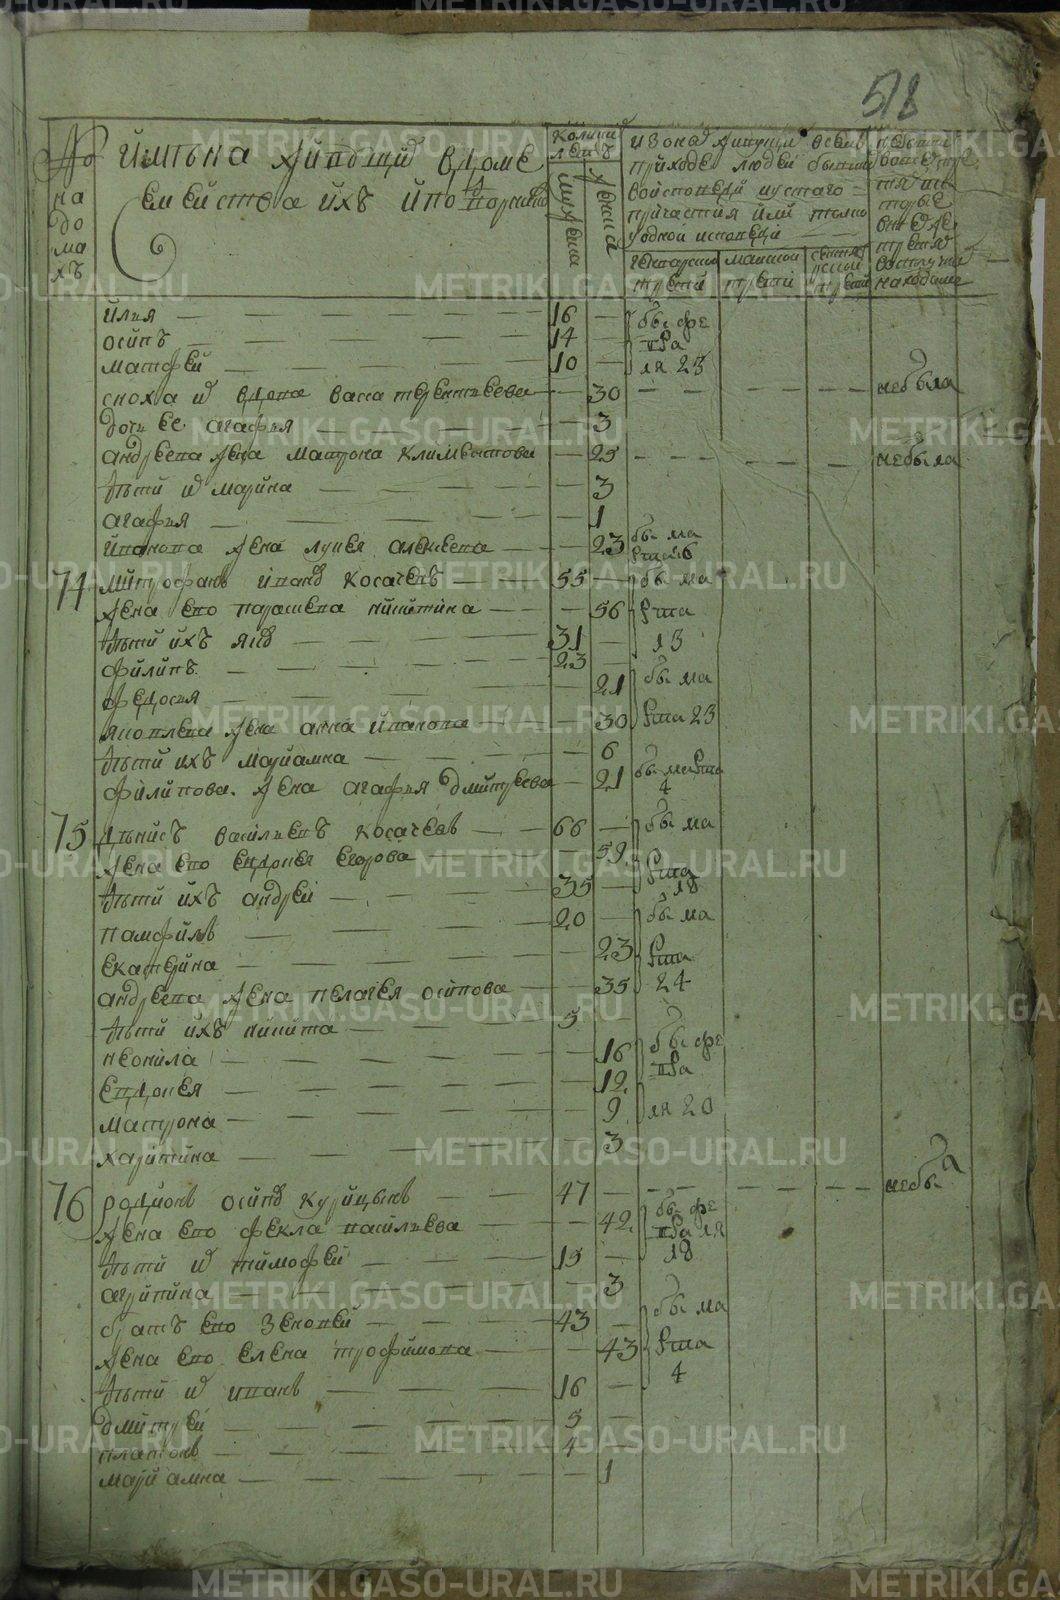 METRIKI.GASO-URAL.RU
518
№ на домахъ
имяна живущиі вдоме
семейства ихъ
колики летъ
мужеска
женска
приходе людеи бывши
воисповеди исвтаго
причастия или токмо
уоднои исповеди
илия 16 бы фе
осипъ 14 вра
матфеи 10 ля 23
сноха и вдова васа терентиева 30 небыла
дочь ее агафия 3
андреева жена матрона климентова 25 небыла
дети и марина 3
агафия 1
иванова жена лукея алексеева 23 бы ма рта 6
74 митрофанъ ивановъ косачевъ 55 бы ма
жена ево парасковя никитина 56 рта
дети ихъ яковъ 31 13
филипъ 23
федосия 21 бы ма
яковлева жена анна иванова 30 рта 23
дети ихъ мариамна 6
филипова жена агафия дмитреева 21 бы ма рта 4
75 денисъ василиевъ косачевъ 66 бы ма
жена ево евдокия егорова 59 рта
дети ихъ андреи 35 18
памфилъ 20 бы ма
екатерина 23 рта
андреева жена пелагея осипова 35 24
дети ихъ никита 5
неонила 16 бы фе
евдокея 12 вра
матрона 9 ля 20
харитина 3
76 родионъ осиповъ курицынъ 47 небы
жена ево фекла василиева 42 бы фе вра ля
дети и тимофеи 15 18
агрипина 3
братъ ево зеновеи 43 бы ма
жена ево елена трофимова 43 рта
дети и иванъ 16 4
дмитреи 5
платонъ 4
мариамна 1